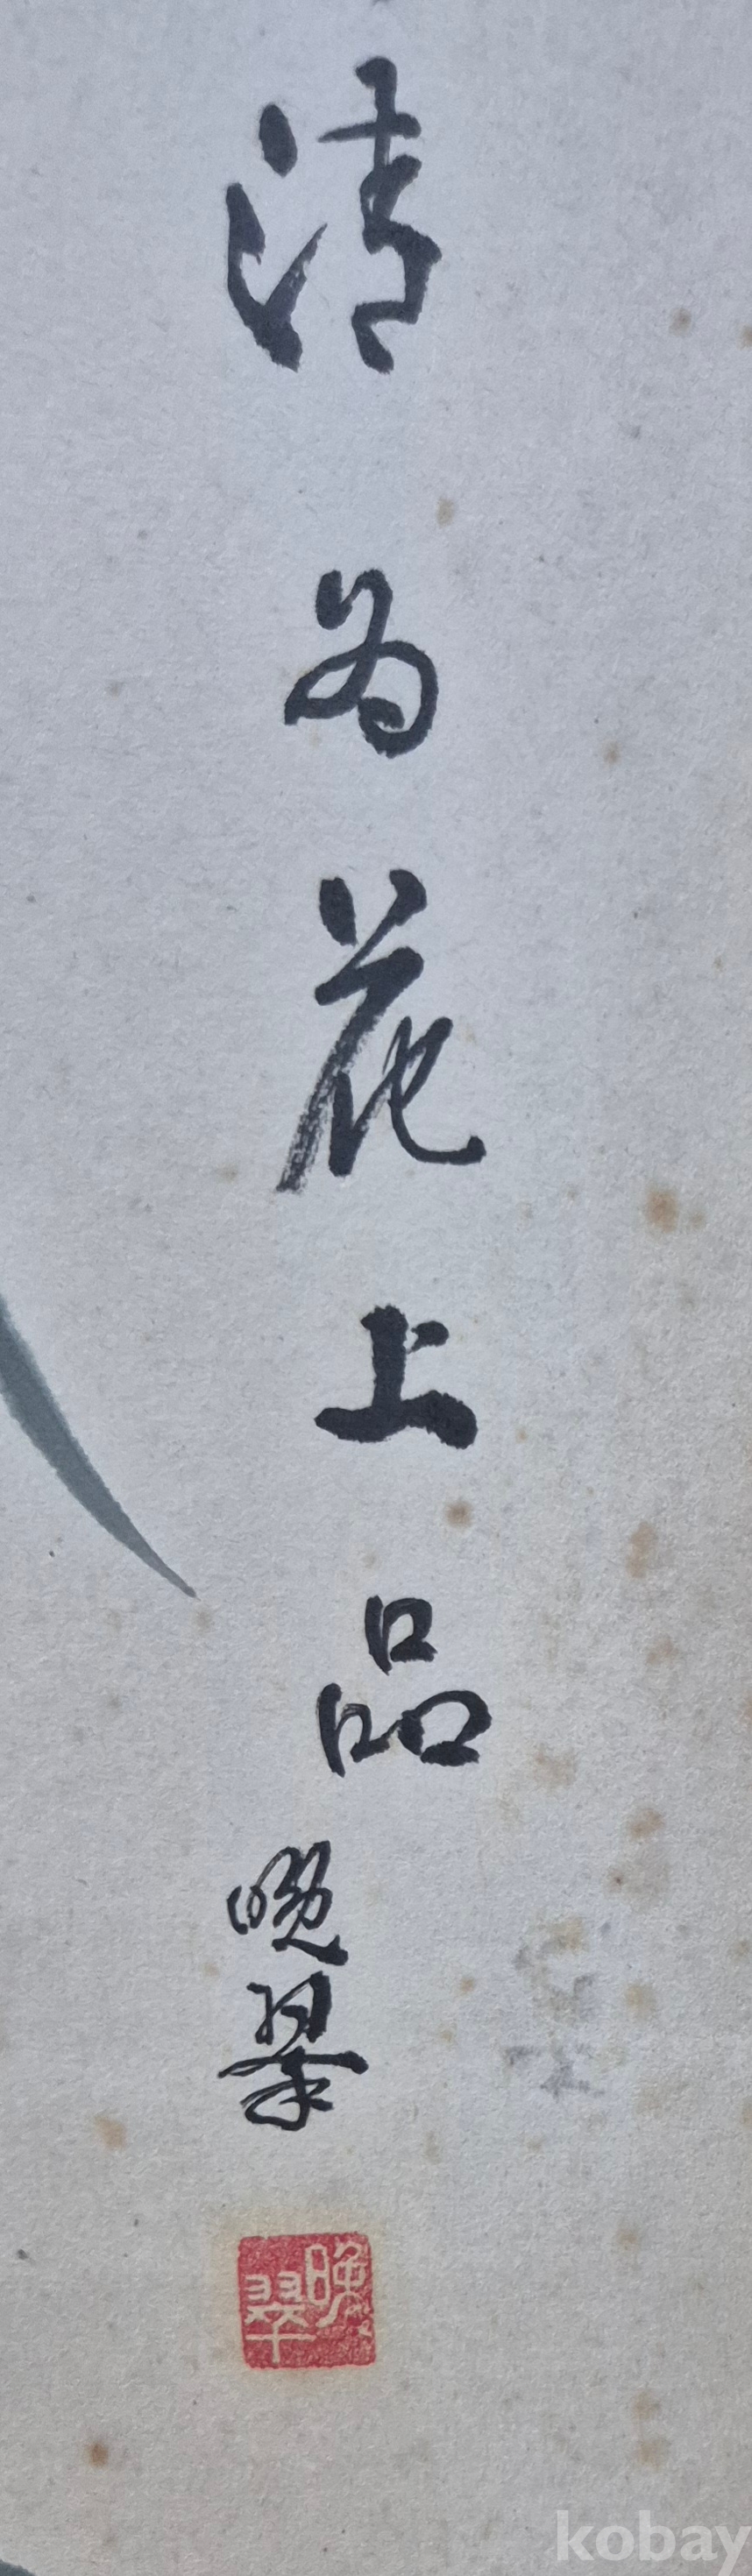 清為花上品
晩翠
晩翠
kobay